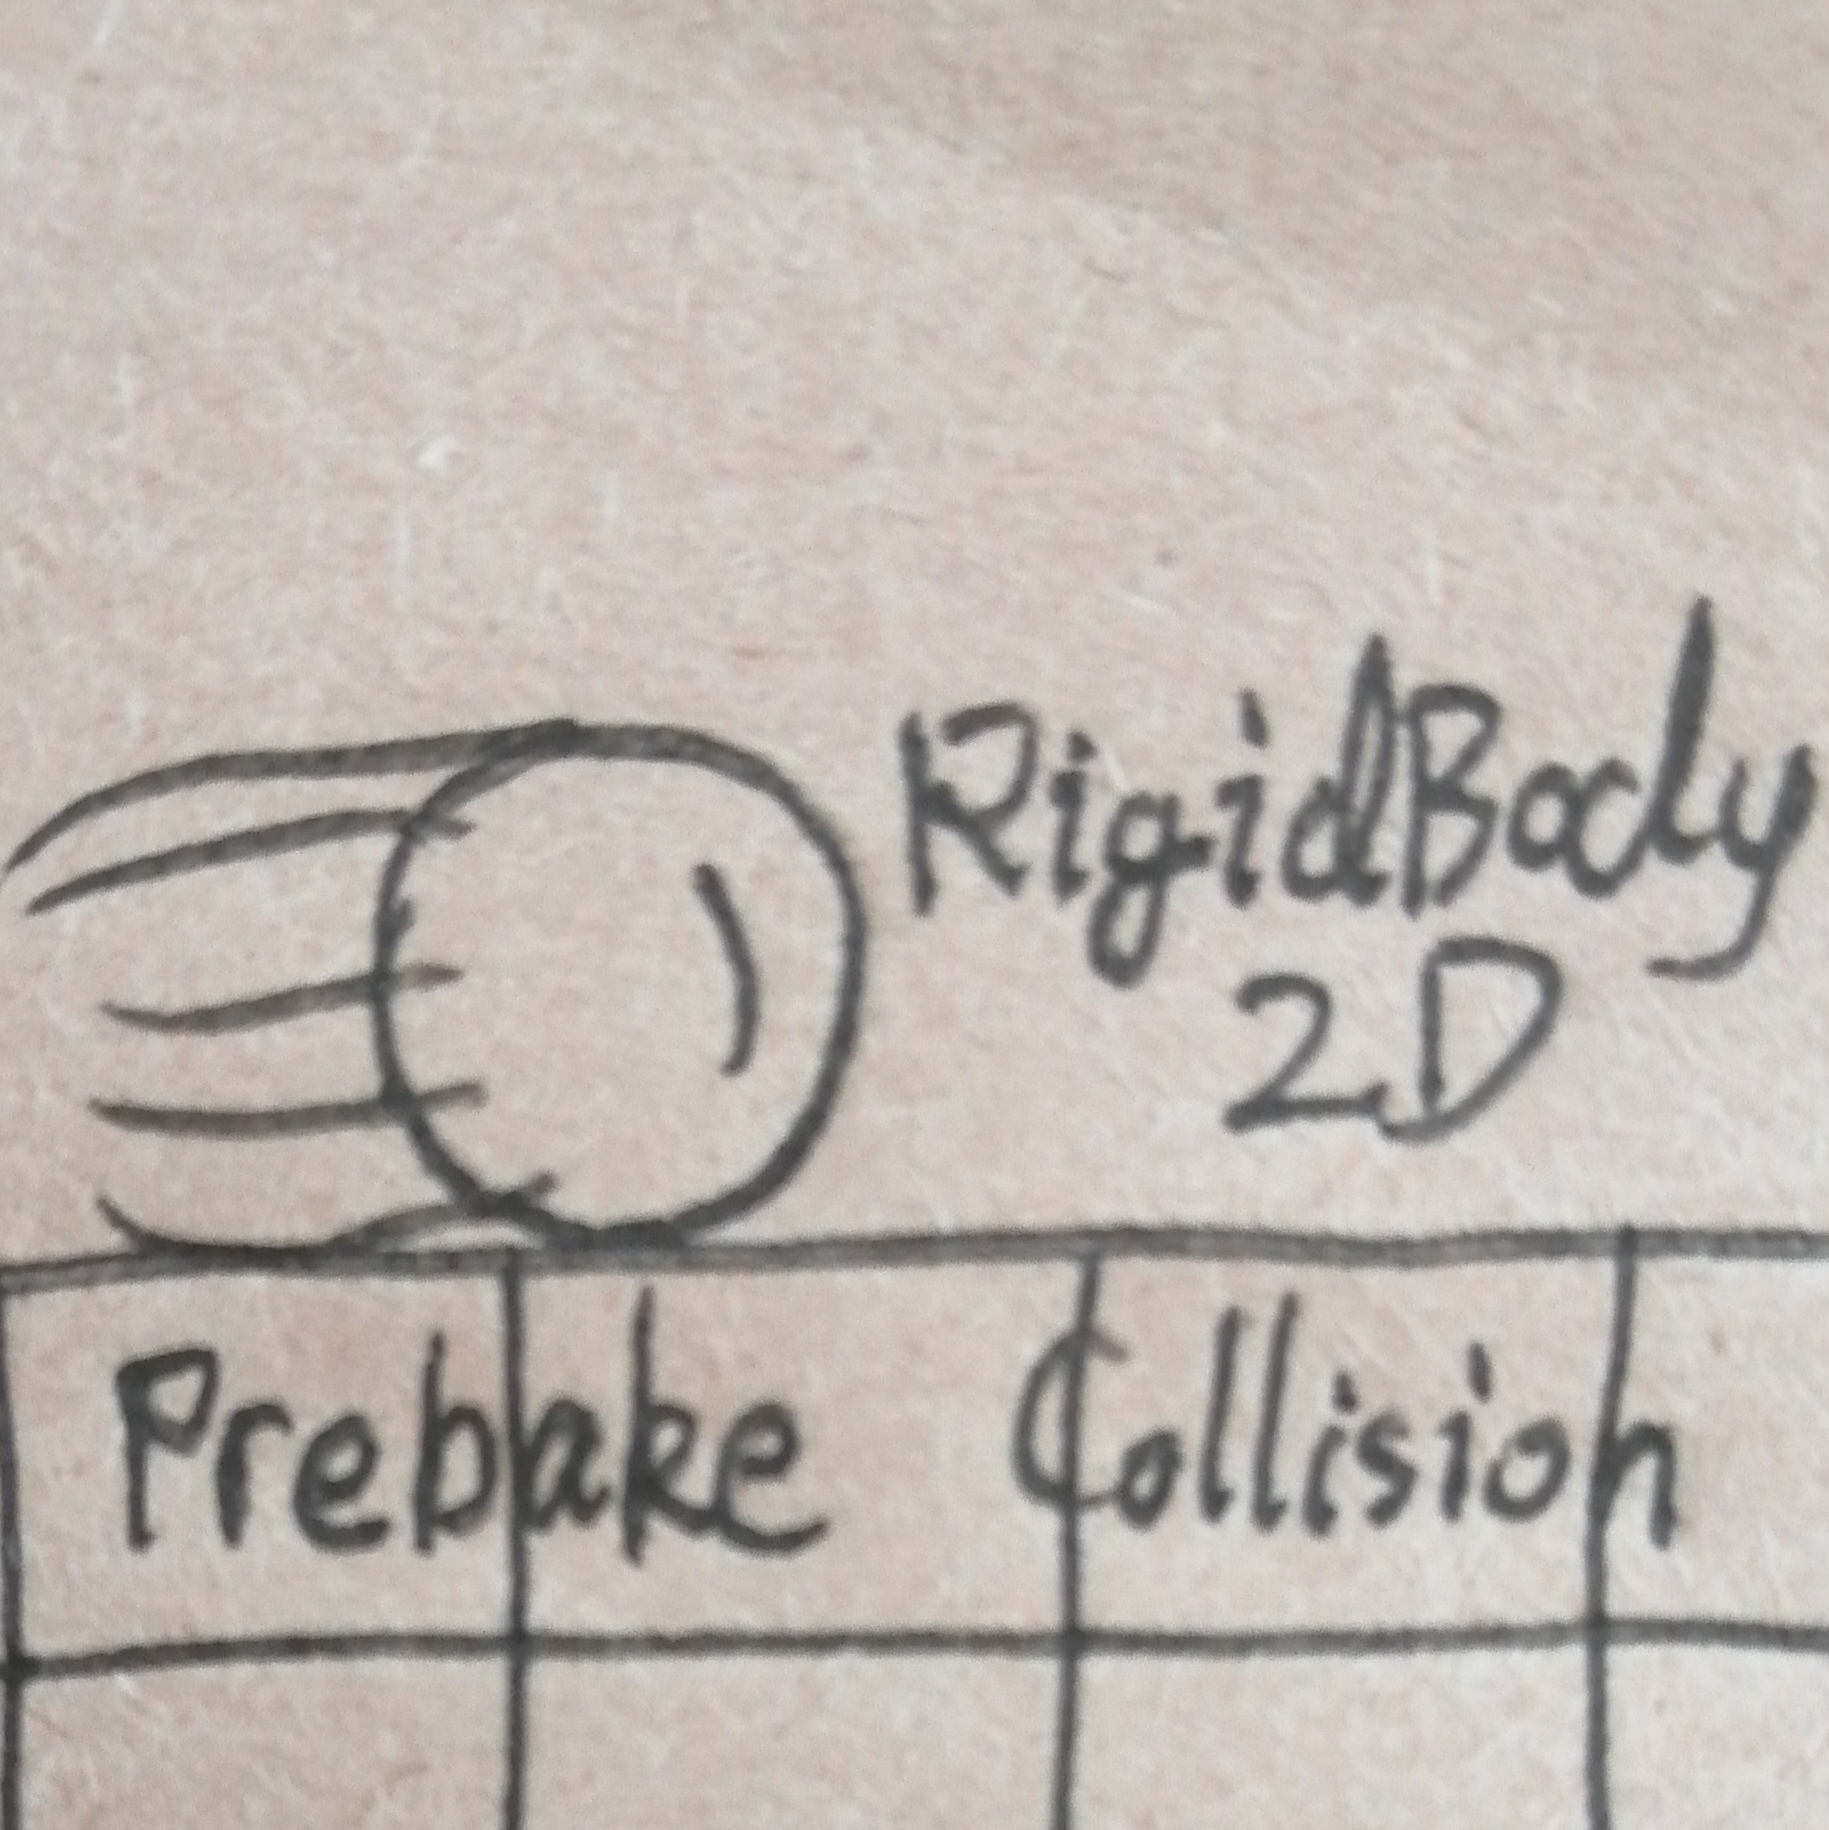 RigidBody
2D
Prebake Collision